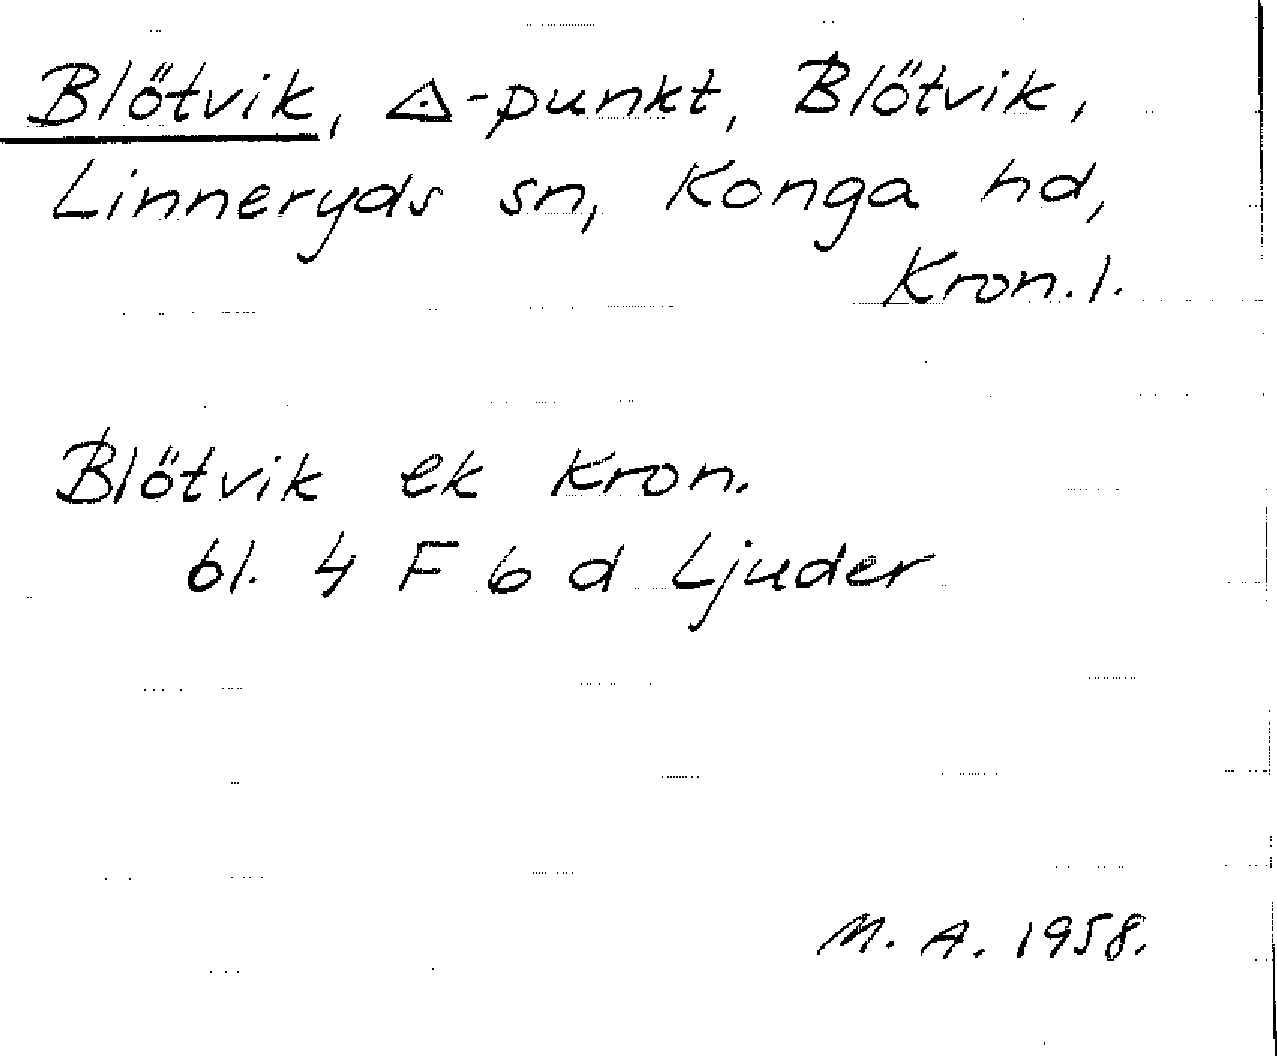 Blötvik, ◬-punkt, Blötvik,
Linneryds sn, Konga hd,
Kron.l.
Blötvik ek Kron.
bl. 4 F 6 d Ljuder
M. A. 1958.